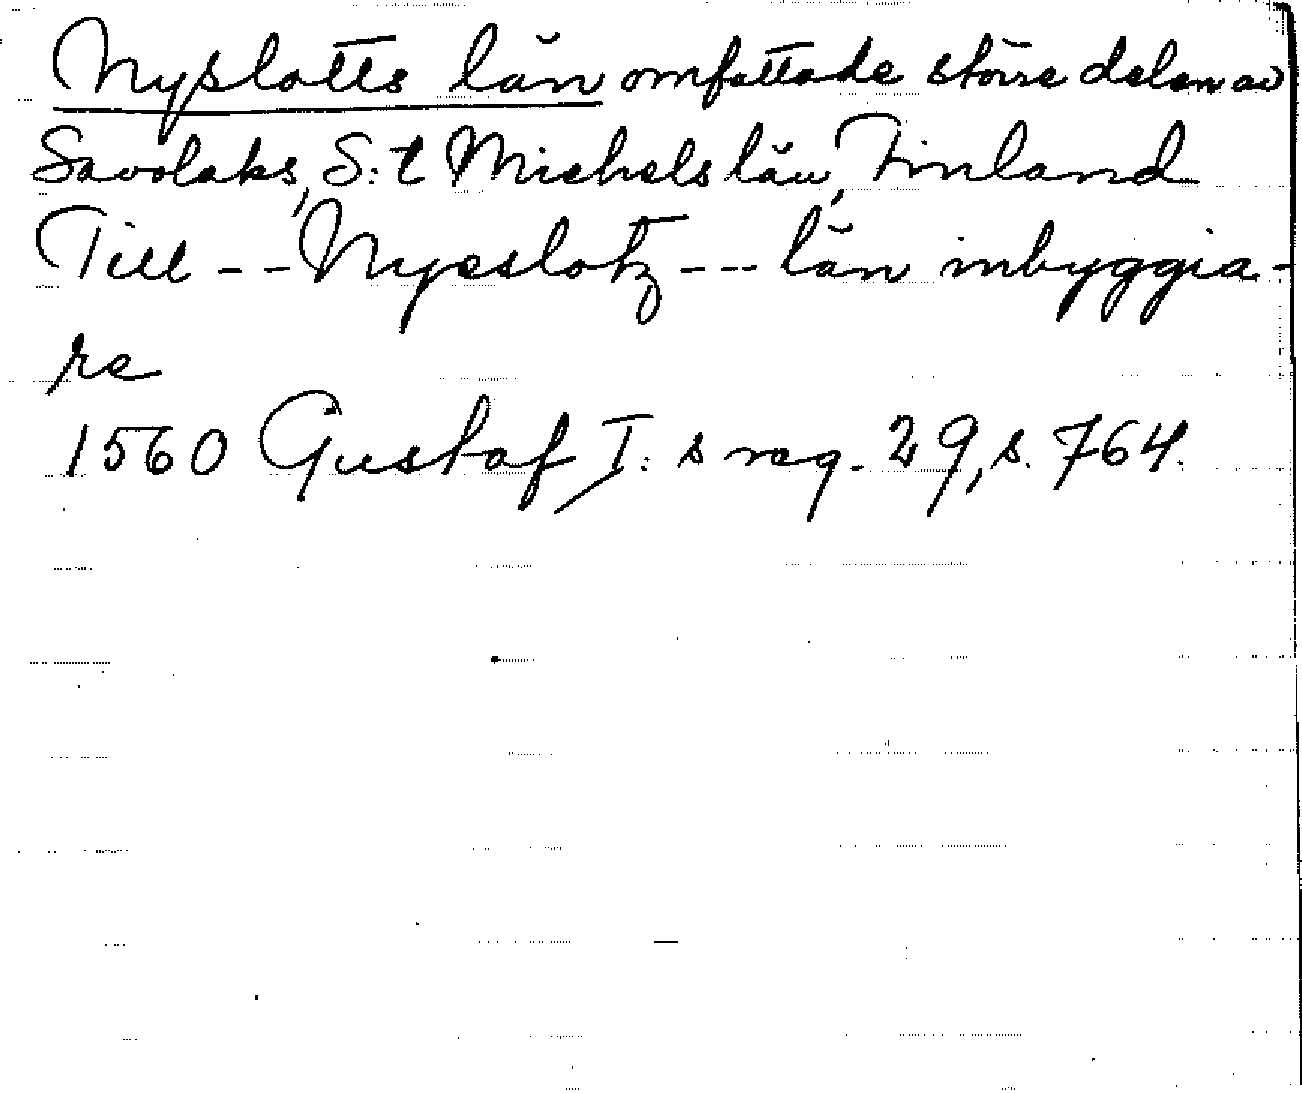 Nyslotts län omfattade större delen av
Savolaks, S:t Michels län, Finland
Till -- Nyeslotz --- län inbyggia-
re
1560 Gustaf I:s reg. 29, s. 764.